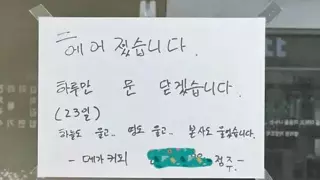 헤어졌습니다.
하루만 문 닫겠습니다.
(23일)
하늘도 울고.. 땅도 울고.. 본사도 울었습니다.
- 메가커피 점주. -